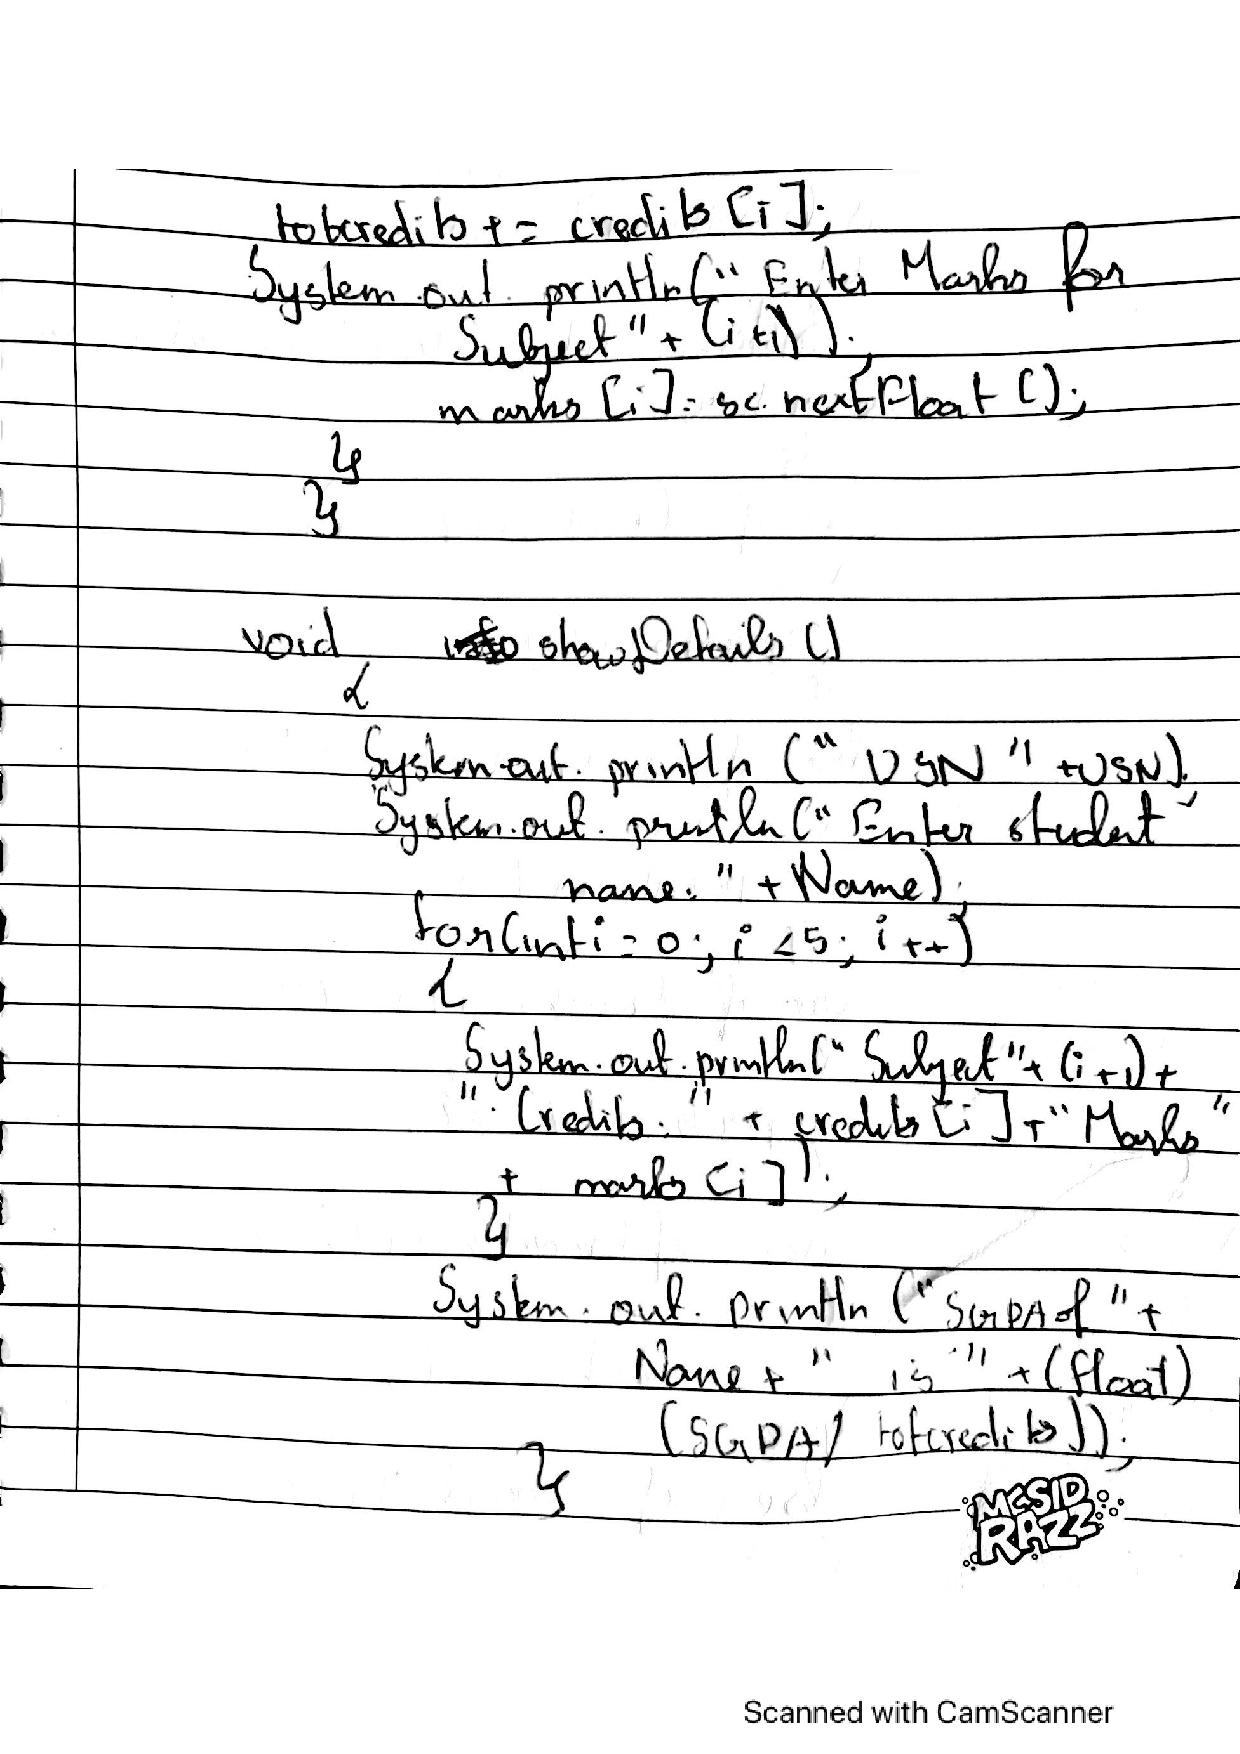 totcredits += credits [i];
System.out.println(" Enter Marks for
Subject" + (i+1));
marks [i] = sc.nextFloat ();
}
}
void showDetails ()
{
System.out.println (" USN " +USN);
System.out.println (" Enter student
name. " + Name);
for(int i = 0; i <5; i++)
{
System.out.println(" Subject"+ (i+1) +
". Credits. " + credits [i] + " Marks "
+ marks [i] );
}
System.out.println ("SGPA of " +
Name + " is " + (float)
(SGPA/ totcredits));
}
MCSID
RAZZ
Scanned with CamScanner